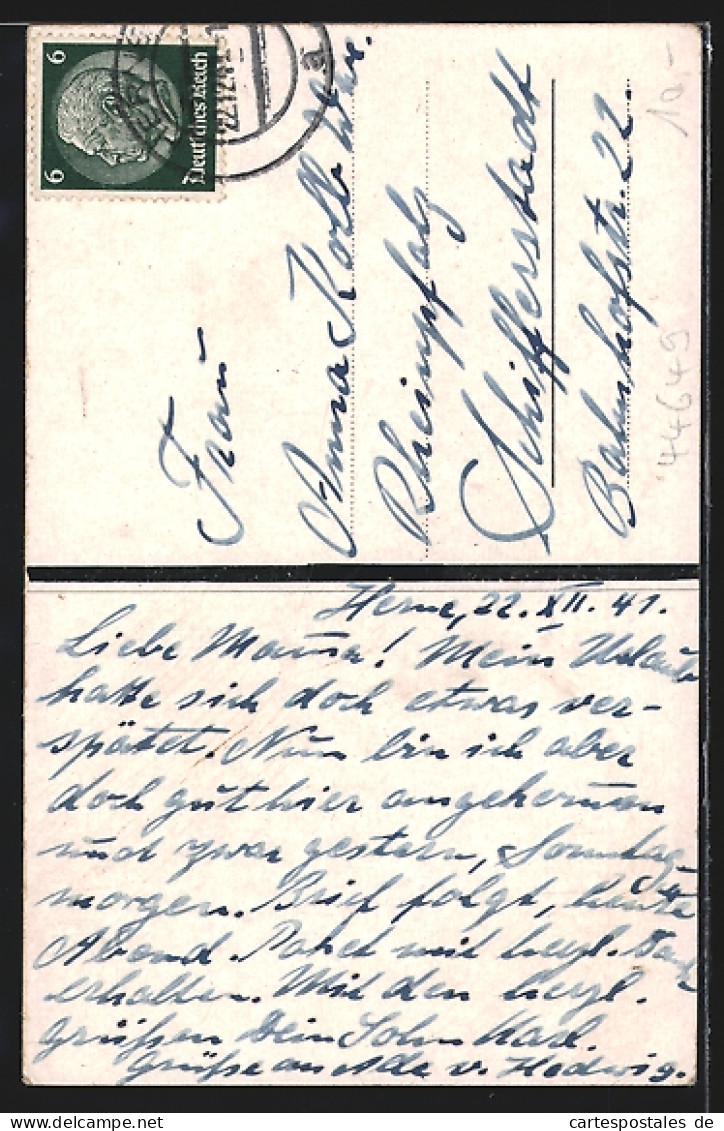 6 6
Deutsches Reich
22.12.41
a
Frau
Anna Kolb Wwe.
Rheinpfalz
Schifferstadt
Bahnhofstr. 22.
10.-
44649
Herne, 22. XII. 41.
Liebe Mama! Mein Urlaub
hatte sich doch etwas ver-
spätet. Nun bin ich aber
doch gut hier angekommen
und zwar gestern, Sonntag-
morgen. Brief folgt, heute
Abend. Paket mit herzl. Dank
erhalten. Mit den herzl.
Grüßen Dein Sohn Karl.
Grüße an Alle v. Hedwig.
www.oldthing.de
cartespostales.de